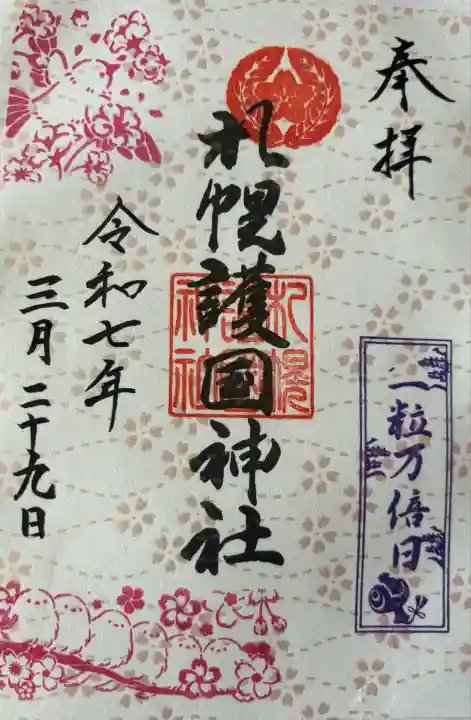 奉拝
札幌護国神社
札幌護国神社
令和七年
三月二十九日
一粒万倍日